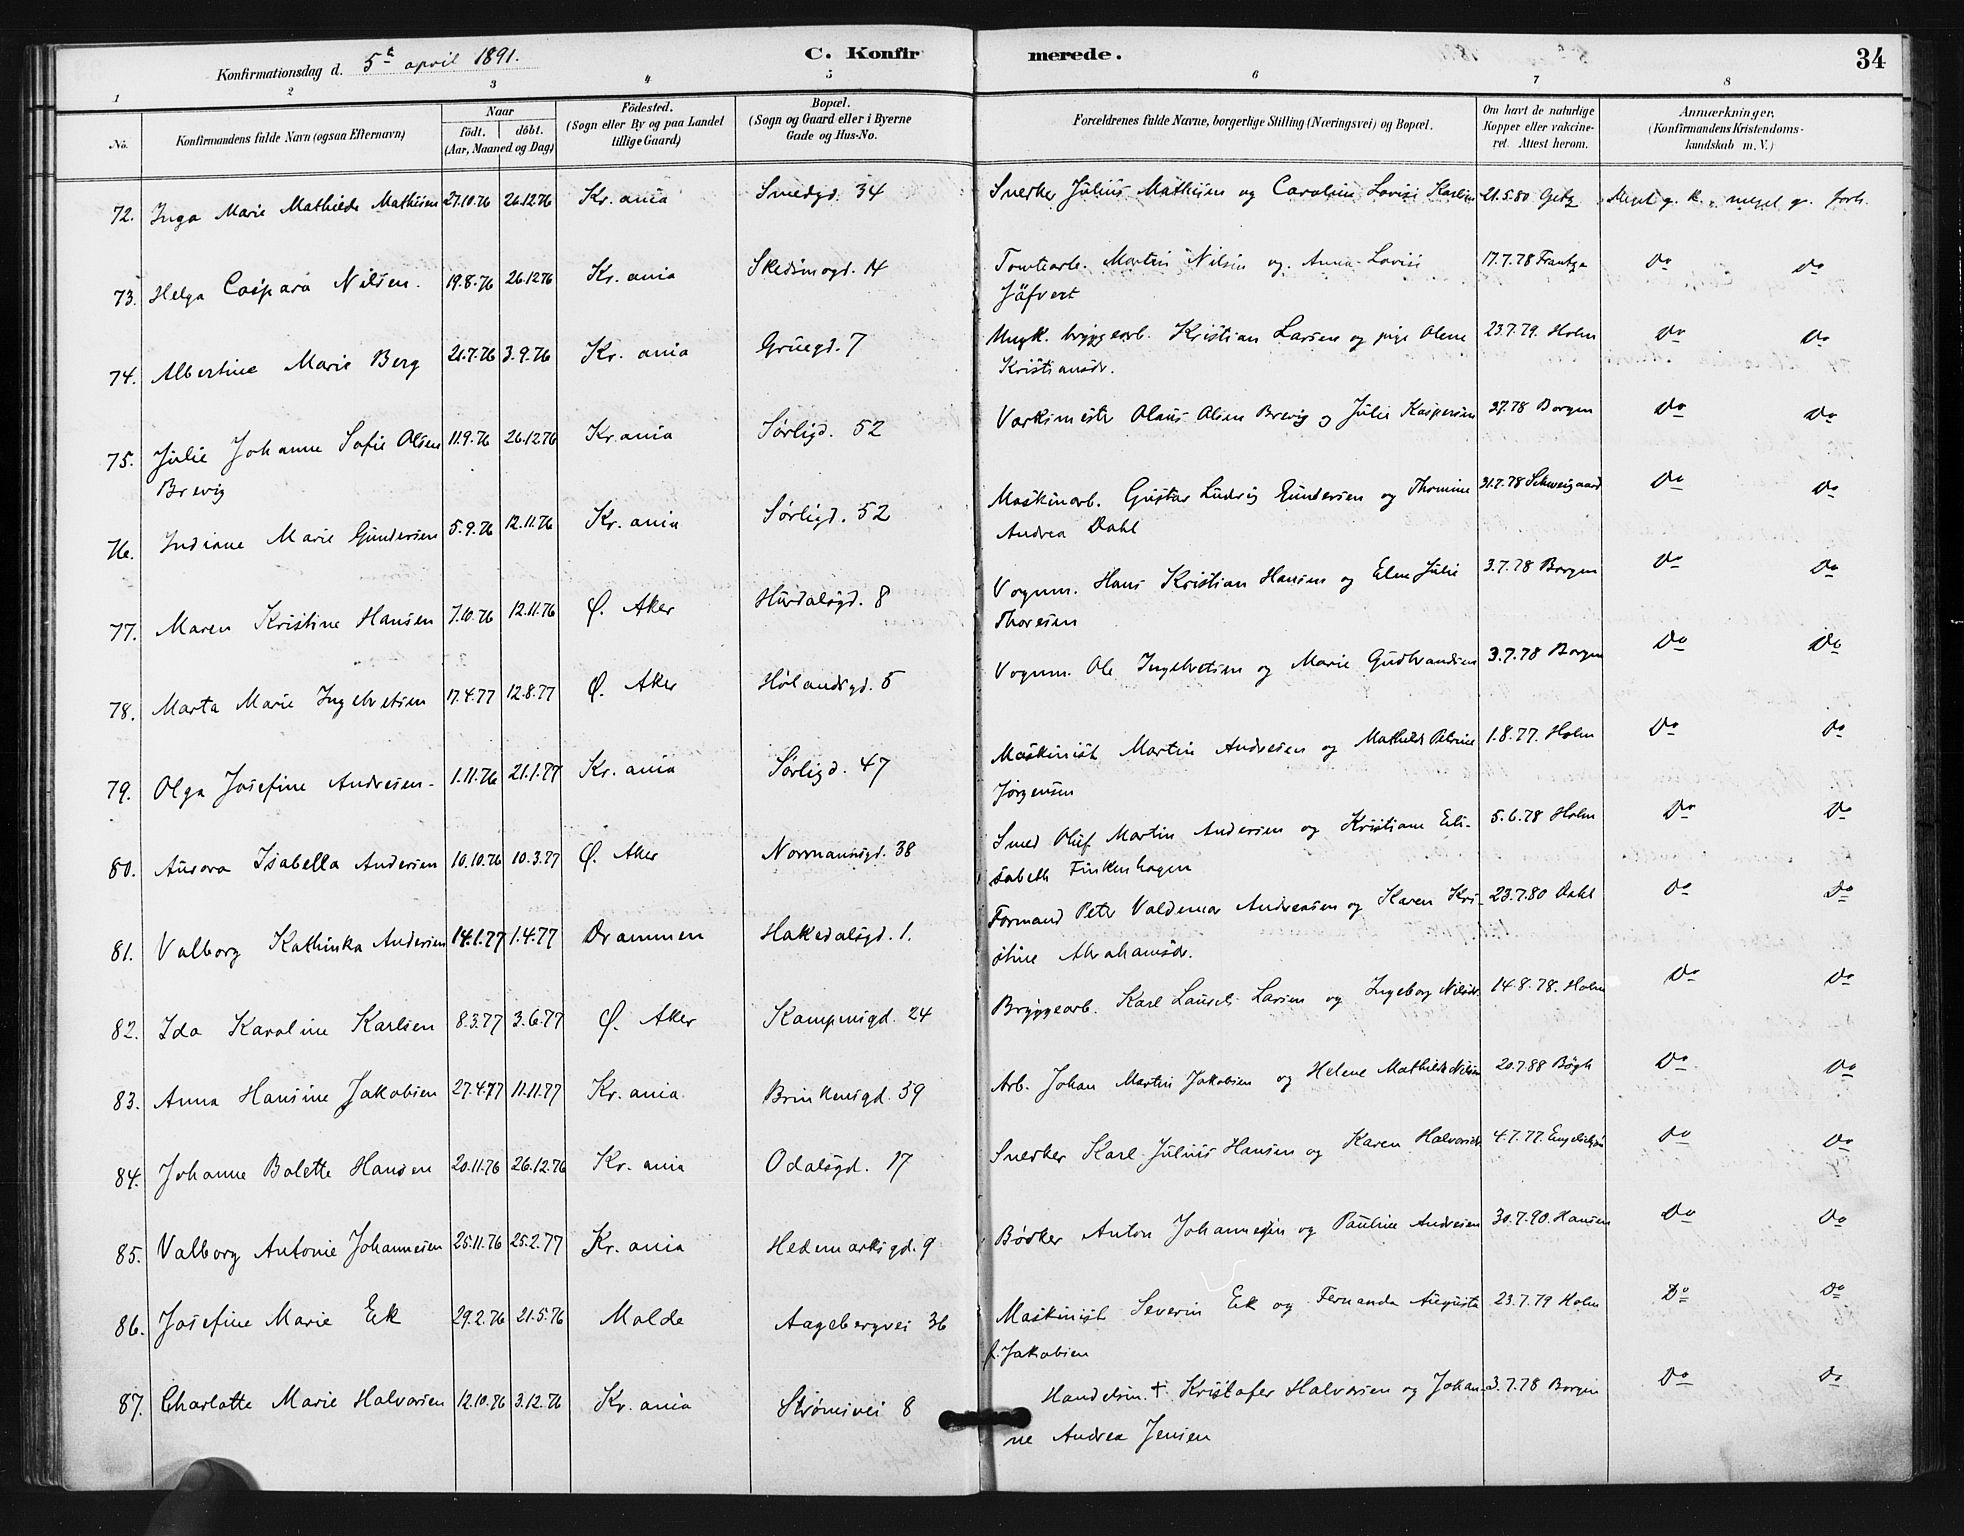 Konfirmationsdag d. 5te april 1891. C. Konfirmerede. 34
1 2 3 4 5 6 7 8
No. Konfirmandens fulde Navn (ogsaa Efternavn) Naar födt. döbt. (Aar, Maaned og Dag) Födested. (Sogn eller By og paa Landet tillige Gaard) Bopæl. (Sogn og Gaard eller i Byerne Gade og Hus-No. Forældrenes fulde Navne, borgerlige Stilling (Næringsvei) og Bopæl. Om havt de naturlige Kopper eller vakcineret. Attest herom. Anmærkninger. (Konfirmandens Kristendomskundskab m. V.)
72. Inga Marie Mathilde Mathisen 27.10.76 26.12.76 Kr.ania Smedgd. 34 Snedker Julius Mathisen og Caroline Lovise Karlsen 21.5.80 Getz Meget g. k., meget g. forh.
73. Helga Caspara Nilsen. 19.8.76 26.12.76 Kr. ania Skedsmogd. 14 Tomtearb. Martin Nilsen og Anna Lovise 17.7.78 Do Do
Jäfvert
74. Albertine Marie Berg 21.7.76 3.9.76 Kr. ania Gruegd. 7 Ungk. bryggearb. Kristian Larsen og pige Olene 23.7.79. Holm Do Do
Kristiansdr.
75. Julie Johanne Sofie Olsen 11.9.76 26.12.76 Kr.ania Sørligd. 52 Værksmester Olaus Olsen Brevig og Julie Kaspersen 3.7.78 Borgen Do Do
Brevig
76. Indiane Marie Gundersen 5.9.76 12.11.76 Kr. ania Sørligd. 52 Maskinarb. Gustav Ludvig Gundersen og Thomine 31.7.78 Schweigaard Do Do
Andrea Dahl
77. Maren Kristine Hansen 7.10.76 12.11.76 Ø. Aker Hurdalsgd. 8 Vognm. Hans Kristian Hansen og Elen Julie 3.7.78 Borgen Do Do
Thoresen
78. Marta Marie Ingebretsen 17.4.77 12.8.77 Ø. Aker Hølandsgd. 5 Vognm. Ole Ingebretsen og Marie Gudbrandsen 3.7.78 Borgen Do Do
79. Olga Josefine Andresen. 1.11.76 21.1.77 Kr. ania Sørligd. 47 Maskinist Martin Andresen og Mathilde Petrine 1.8.77. Holm Do Do
Jørgensen
80. Aurora Isabella Andersen 10.10.76 10.3.77 Ø. Aker Normannsgd. 38 Smed Oluf Martin Andersen og Kristiane Eli- 5.6.78 Holm Do Do
sabeth Finkenhagen
81. Valborg Kathinka Andersen 14.1.77 1.4.77 Drammen Hakedalsgd. 1. Formand Peter Valdemar Andreasen og Karen Kri- 23.7.80 Dahl Do Do
stine Abrahamsdr.
82. Ida Karoline Karlsen 8.3.77 3.6.77 Ø. Aker Kampensgd. 24 Bryggearb. Karl Lauseb Larsen og Ingeborg Nilsdr. 14.8.78. Holm Do Do
83. Anna Hansine Jakobsen 27.4.77 11.11.77 Kr. ania Brinkensgd. 39 Arb. Johan Martin Jakobsen og Helene Mathilde Nilsen 20.7.88 Bögh Do Do
84. Johanne Bolette Hansen 20.11.76 26.12.76 Kr. ania Odalsgd. 17 Snedker Karl Julius Hansen og Karen Halvorsdr. 4.7.77. Do Do
85. Valborg Antonie Johannesen 25.11.76 25.2.77 Kr. ania Hedemarksgd. 9 Bødker Anton Johannesen og Pauline Andresen 30.7.90. Hansen Do Do
86. Josefine Marie Eek 29.2.76 21.5.76 Molde Aagebergvei 36 Maskinist Severin Eek og Fernanda Augusta 23.7.79 Holm Do Do
f. Jakobsen
87. Charlotte Marie Halvorsen 12.10.76 3.12.76 Kr. ania Strømsvei 8 Handelsm. + Kristofer Halvorsen og Johan- 3.7.78 Borgen Do Do
ne Andrea Jensen